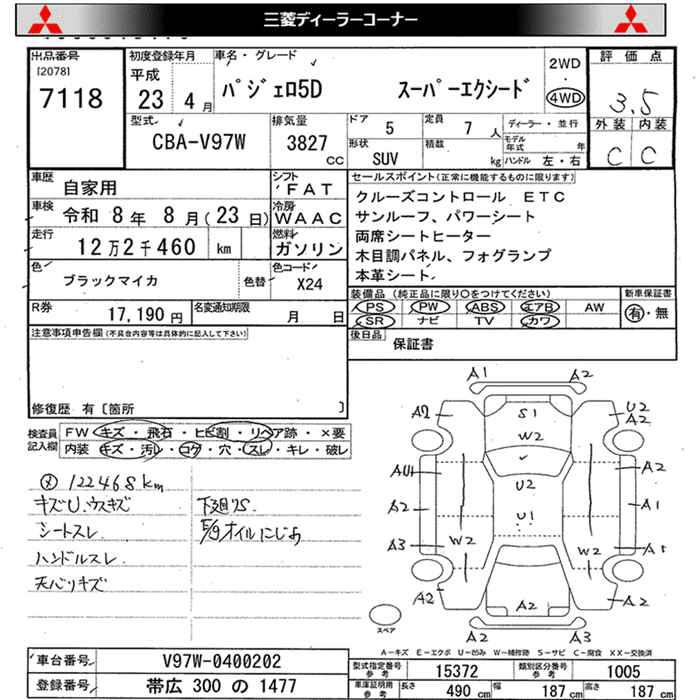 三菱ディーラーコーナー
出品番号 初度登録年月 車名・グレード 2WD 評価点
[2078] 平成 ・
7118 23 4月 パジェロ5D スーパーエクシード 4WD 3.5
型式 排気量 ドア 5 定員 7 人 ディーラー・並行 外装 内装
CBA-V97W 3827 cc 形状 SUV 積載 kg モデル年式 年 ハンドル 左・右 C C
車歴 自家用 シフト FAT セールスポイント(正常に機能するものに限ります)
車検 令和 8年 8月(23日) 冷房 WAAC クルーズコントロール ETC
サンルーフ、パワーシート
走行 12万2千460 km 燃料 ガソリン 両席シートヒーター
木目調パネル、フォグランプ
色 ブラックマイカ 色替 色コード X24 本革シート
装備品(純正品に限り○をつけてください) 新車保証書
R券 17,190円 名変通知期限 月 日 PS ・ PW ・ ABS ・ エアB ・ AW 有・無
SR ・ ナビ ・ TV ・ カワ
注意事項申告欄(不具合内容等は具体的に記入して下さい) 後日品 保証書
修復歴 有〔箇所 〕
検査員 FW キズ・飛石・ヒビ割・リペア跡・×要
記入欄 内装 キズ・汚レ・コゲ・穴・スレ・キレ・破レ
122468km
キズU.ウスキズ 下廻りS
シートスレ E/gオイルにじみ
ハンドルスレ
天バリキズ
A1 A2
A2 S1 U2 A2
W2
AU1 U2 A2
A2 U1 A1
A3 W2 W2 A1
A2 A2 A2
A2 A3
スペア
A-キズ E-エクボ U-凹み W-補修跡 S-サビ C-腐食 XX-交換済
車台番号 V97W-0400202 型式指定番号 参考 15372 類別区分番号 参考 1005
登録番号 帯広 300 の 1477 車庫証明用 参考 長さ 490 cm 幅 187 cm 高さ 187 cm